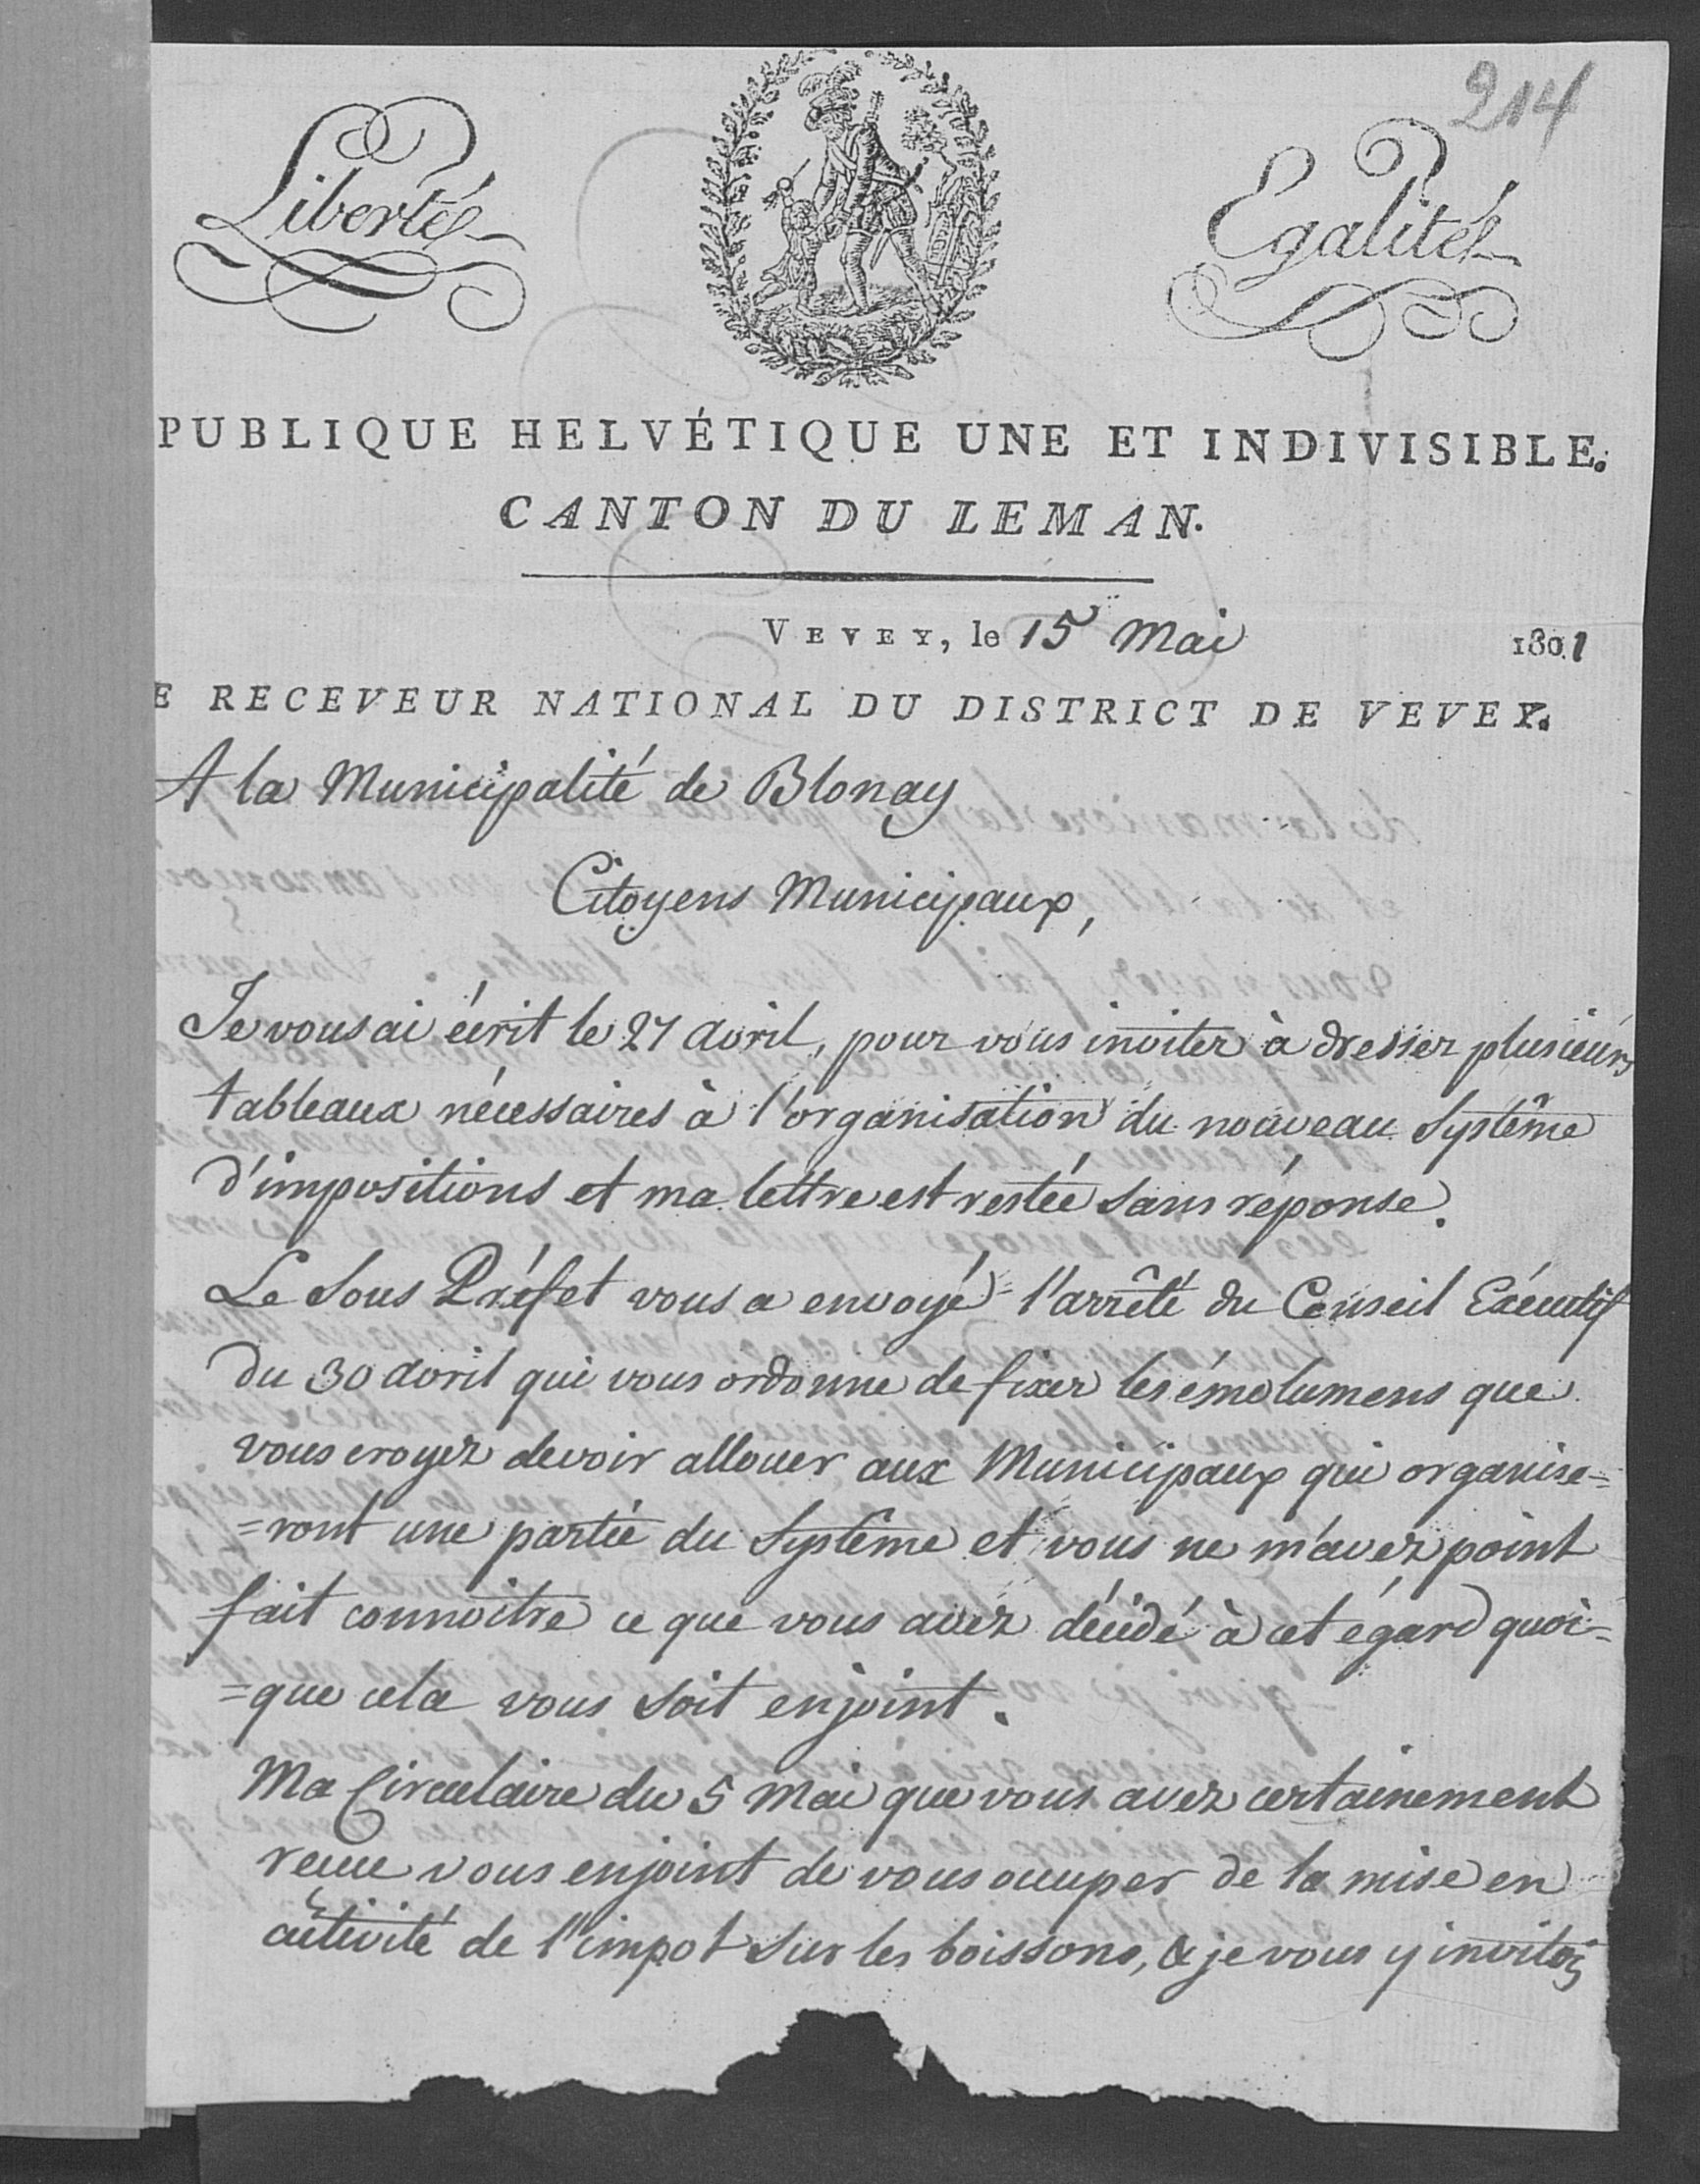 214
Liberté
Egalité
PUBLIQUE HELVÉTIQUE UNE ET INDIVISIBLE.
CANTON DU LEMAN.
VEVEY, le 15 Mai 1801
E RECEVEUR NATIONAL DU DISTRICT DE VEVEY.
A la Municipalité de Blonay
Citoyens Municipaux,
Je vous ai écrit le 27 avril, pour vous inviter à dresser plusieurs
tableaux nécessaires à l'organisation du nouveau Systême
d'impositions et ma lettre est restée sans réponse.
Le Sous Préfet vous a envoyé l'arrêté du Conseil Exécutif
du 30 avril qui vous ordonne de fixer les émolumens que
vous croyez devoir allouer aux Municipaux qui organise=
=ront une partie du Systême et vous ne m'avez point
fait connoitre ce que vous avez décidé à cet égard quoi=
=que cela vous soit enjoint.
Ma Circulaire du 5 Mai que vous avez certainement
recue vous enjoint de vous occuper de la mise en
activité de l'impot sur les boissons, & je vous y invitois